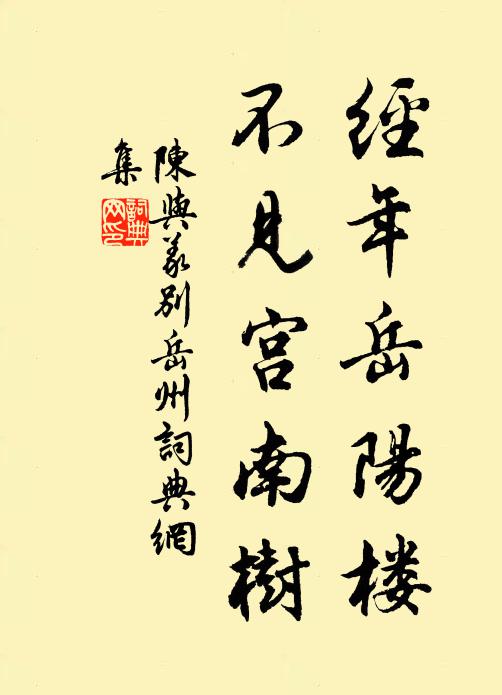 經年岳陽楼
不見宫南樹
陳與義别岳州詞典網
集
詞典
网印